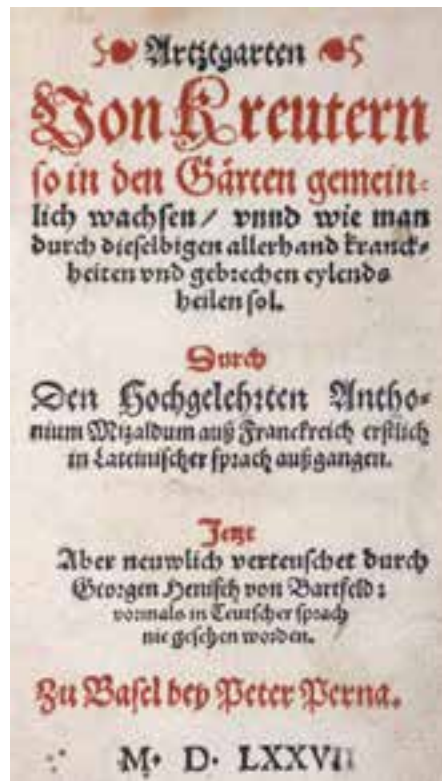 Artztgarten
Von Kreutern
so in den Gärten gemein⸗
lich wachsen/ vnnd wie man
durch dieselbigen allerhand kranck⸗
heiten vnd gebrechen eylends
heilen sol.
Durch
Den Hochgelehrten Antho⸗
nium Mizaldum auß Franckreich erstlich
in Lateinischer sprach außgangen.
Jetzt
Aber neuwlich verteuschet durch
Georgen Henisch von Bartfeld:
vormals in Teutscher sprach
nie gesehen worden.
Zu Basel bey Peter Perna.
M. D. LXXVII